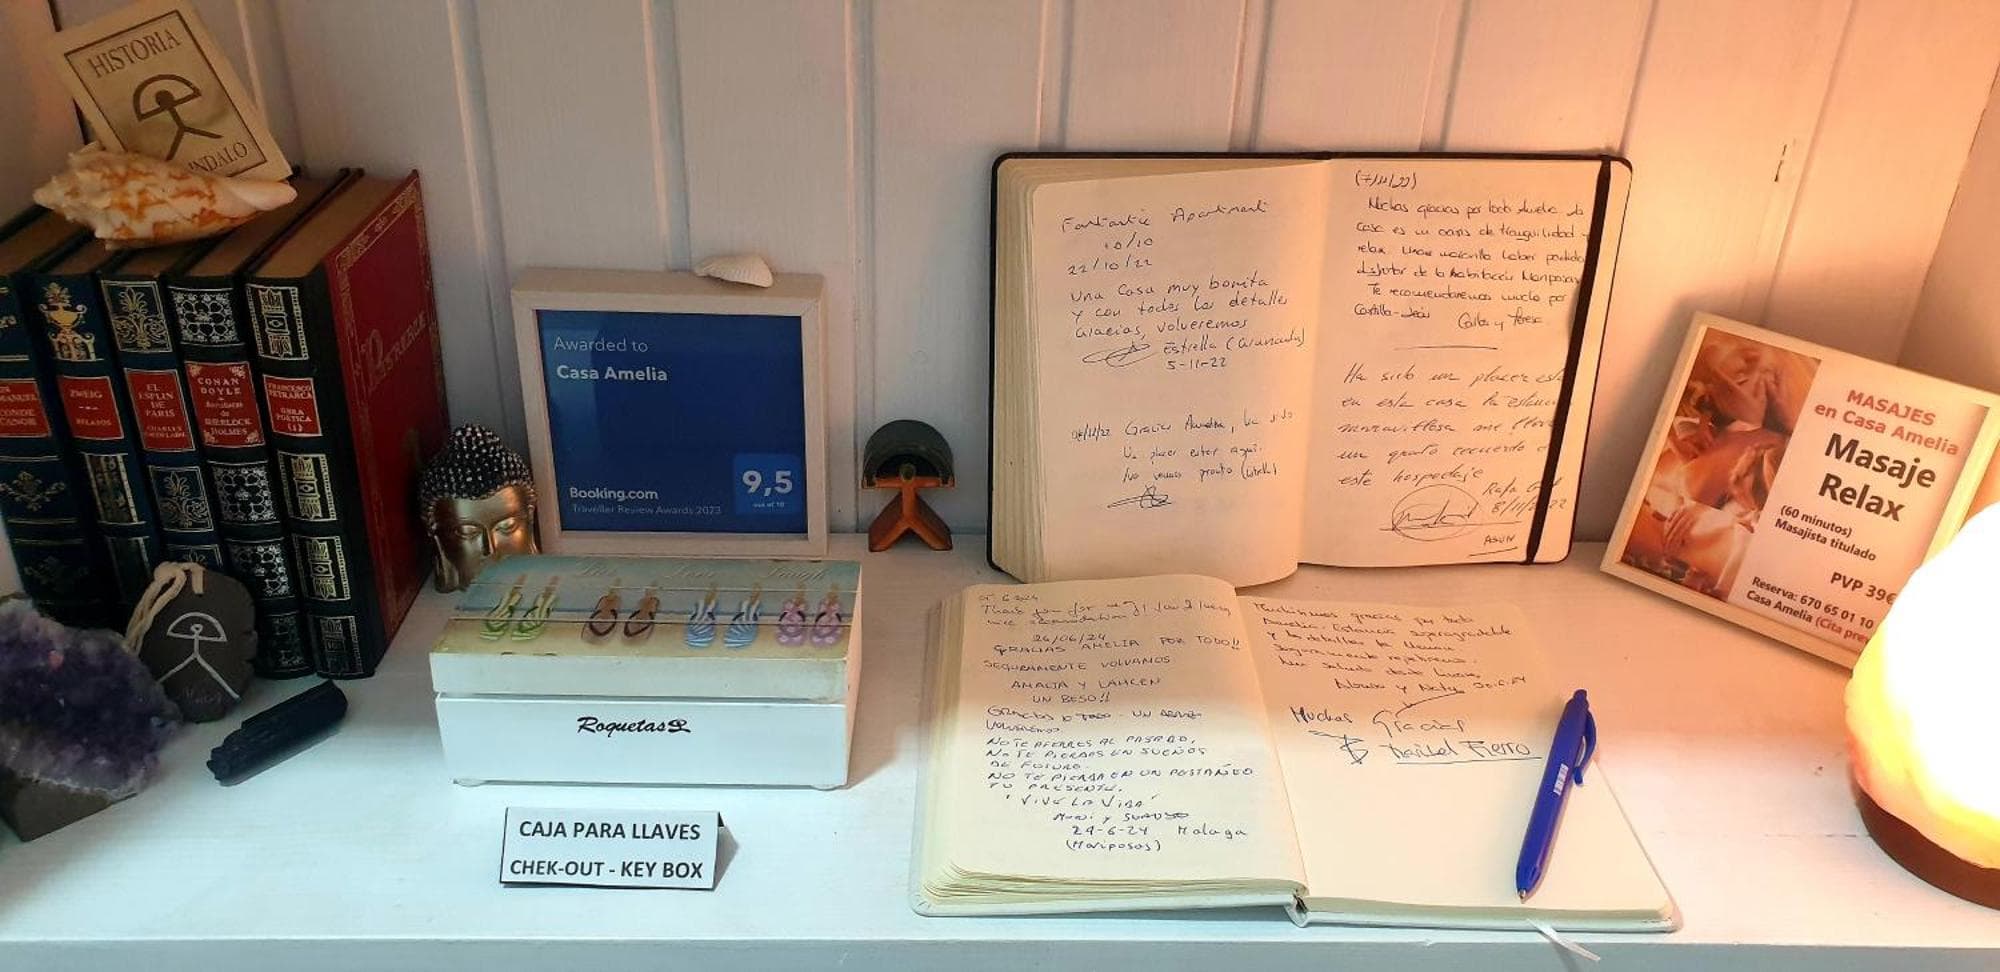 HISTORIA
INDALO
MANUEL
CONDE
ZWEIG
RELATOS
EL
ESPLIN
DE
PARIS
CHARLES
CONAN
DOYLE
Aventuras
de
SHERLOCK
HOLMES
FRANCESCO
PETRARCA
OBRA
POETICA
(I)
Awarded to
Casa Amelia
9,5
out of 10
Booking.com
Traveller Review Awards 2023
Live Love Laugh
Roquetas
CAJA PARA LLAVES
CHEK-OUT - KEY BOX
Fantastic Apartment
10/10
22/10/22
Una Casa muy bonita
y con todos los detalles
Gracias, volveremos
Estrella (Granada)
5-11-22
Gracias Amelia, ha sido
Un placer estar aquí.
Nos vemos pronto
(7/11/22)
Muchas gracias por todo Amelia la
casa es un oasis de tranquilidad y
relax. Una maravilla haber podido
disfrutar de la habitación Mariposas
Te recomendaremos mucho por
Castilla-León Carlos y Teresa
Ha sido un placer
en esta casa la estancia
maravillosa me llevo
un grato recuerdo
este hospedaje
Rafa
8/11/2022
ASUN
Thank you for
26/06/24
GRACIAS AMELIA POR TODO!!
SEGURAMENTE VOLVAMOS
AMALIA Y LAHCEN
UN BESO!!
GRACIAS
VOLVEREMOS
NO TE AFERRES AL PASADO,
NO TE PIERDAS EN SUEÑOS
DE FUTURO.
NO TE PIERDA EN UN PESTAÑEO
TU PRESENTE.
"VIVE LA VIDA"
29-6-24 Malaga
(Mariposas)
Muchísimas gracias por todo
Amelia. Estancia superagradable
y los detalles
Seguramente repetiremos.
Un saludo desde
Alonso y Naty 30-6-24
Muchas Gracias
Maribel Fierro
MASAJES
en Casa Amelia
Masaje
Relax
(60 minutos)
Masajista titulado
PVP 39€
Reserva: 670 65 01 10
Casa Amelia (Cita prev